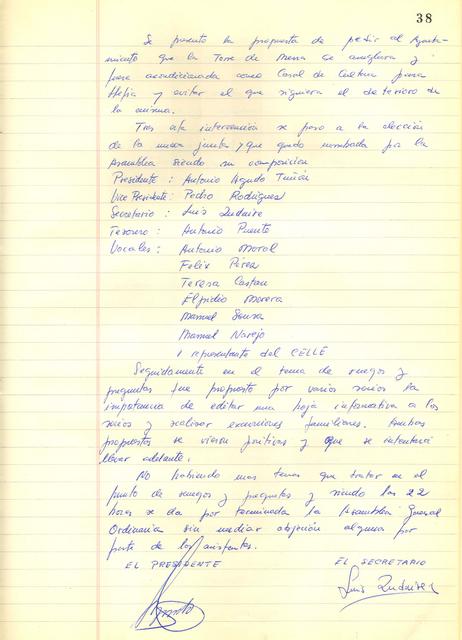 38
Se presento la propuesta de pedir al Ayunta-
miento que la Torre de Mena se arreglara y
fuese acondicionada como Casal de Cultura para
Mejia y evitar el que siguiera el deterioro de
la misma.
Tras esta intervención se paso a la elección
de la nueva junta y que quedo nombrada por la
Asamblea siendo su composicion
Presidente : Antonio Agudo Tuñón
Vice Presidente : Pedro Rodrigues
Secretario : Luis Zudaire
Tesorero : Antonio Puente
Vocales : Antonio Moral
Felix Pérez
Teresa Castan
Elpidio Morera
Manuel Sousa
Manuel Narejo
1 representante del CELLE
Seguidamente en el tema de ruegos y
preguntas fue propuesto por varios socios la
importancia de editar una hoja informativa a los
socios y realizar excursiones familiares. Ambas
propuestas se vieron positivas y que se intentará
llevar adelante.
No habiendo mas temas que tratar en el
punto de ruegos y preguntas y siendo las 22
horas se da por terminada la Asamblea General
Ordinaria sin mediar objeción alguna por
parte de los asistentes.
EL PRESIDENTE EL SECRETARIO
Luis Zudaire